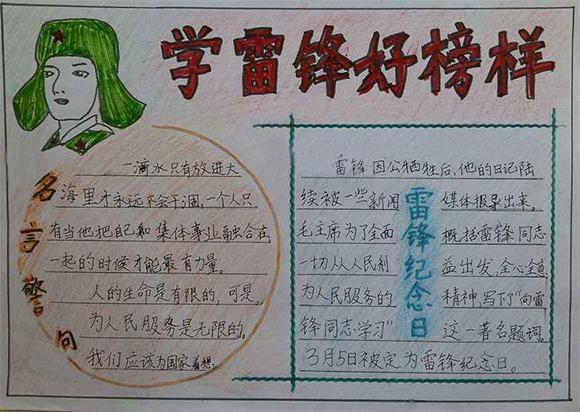 学雷锋好榜样
名言警句
一滴水只有放进大
海里才永远不会干涸，一个人只
有当他把自己和集体事业融合在
一起的时候才能最有力量。
人的生命是有限的，可是，
为人民服务是无限的。
我们应该为国家着想。
雷锋纪念日
雷锋因公牺牲后，他的日记陆
续被一些新闻媒体报导出来。
毛主席为了全面概括雷锋同志
一切从人民利益出发，全心全意
为人民服务的精神，写下了“向雷
锋同志学习”这一著名题词。
3月5日被定为雷锋纪念日。